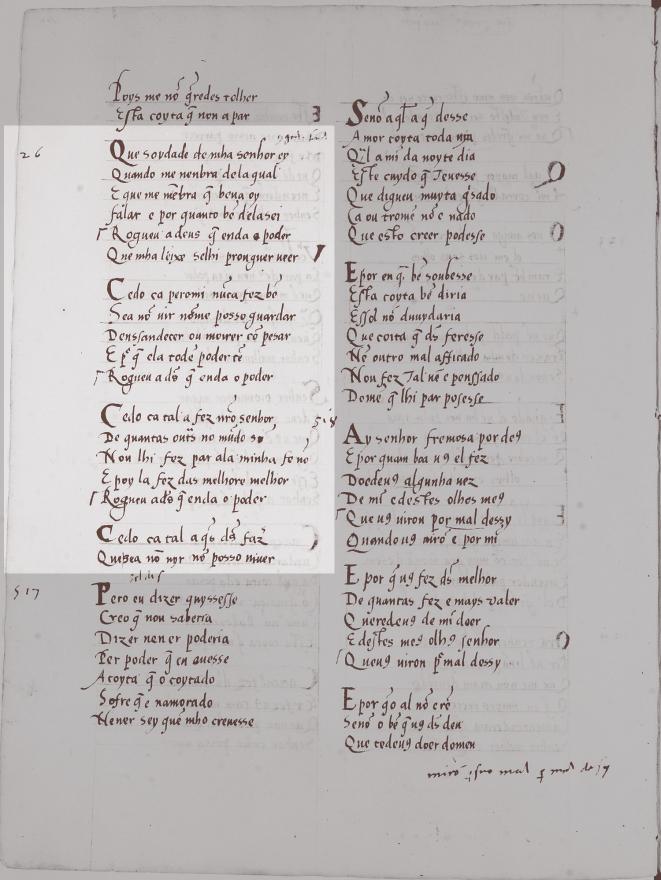 Poys me nõ q̃redes tolher
Esta coyta q̃ non a par
Que soydade de mha senhor ey
Quando me nenbra dela qual
E que me nẽbra q̃ bena oy
falar e por quanto bẽ dela sei
Rogueu a deus q̃ end a o poder
Que mha leixe selhi prouguer ueer
Cedo ca peromi nũca fez bẽ
Sea nõ uir nõme posso guardar
Denssandecer ou moirer cõ pesar
E p̃ q̃ ela tod e poder tẽ
Rogueu ads̃ q̃ end a o poder
Cedo ca tal a fez nr̃o senhor
De quantas out̃s no mũdo sõ
Non lhi fez par ala minha fe nõ
E poy la fez das melhores melhor
Rogueu ads̃ q̃ end a o poder
Cedo ca tal a q̃s ds̃ faz
Que sea nõ uyr nõ posso uiuer
517
Pero eu dizer quysesse
Creo q̃ nou saberia
Dizer nen er poderia
Per poder q̃ en ouesse
A coyta q̃ o coytado
Sofre q̃ e namorado
Nener sey quẽ mho creuesse
Senõ aq̃l a q̃ desse
Amor coyta toda uya
Q̃l a mi da noyte dia
Este cuydo q̃ teuesse
Que diguen muyta g̃sado
Ca outrome nõ e nado
Que esto creer podesse
E por en q̃ bẽ soubesse
Esta coyta bẽ diria
E ssol nõ duuydaria
Que coita q̃ ds̃ fezesse
Nẽ outro mal afficado
Non fez tal nẽ e penssado
Dome q̃ lhi par posesse
Ay senhor fremosa por de9
E por quam boa u9 el fez
Doedeu9 algunha uez
De mĩ e destes olhos me9
Que u9 uiron por mal dessy
Quando u9 uirõ e por mi
E por q̃ u9 fez ds̃ melhor
De quantas fez e mays ualer
Queredeu9 de mi doer
E destes me9 olh9 senhor
Que u9 uiron p̃ mal dessy
E por q̃o al nõ e rẽ
Senõ o bẽ q̃ u9 ds̃ deu
Que redeu9 doer do meu